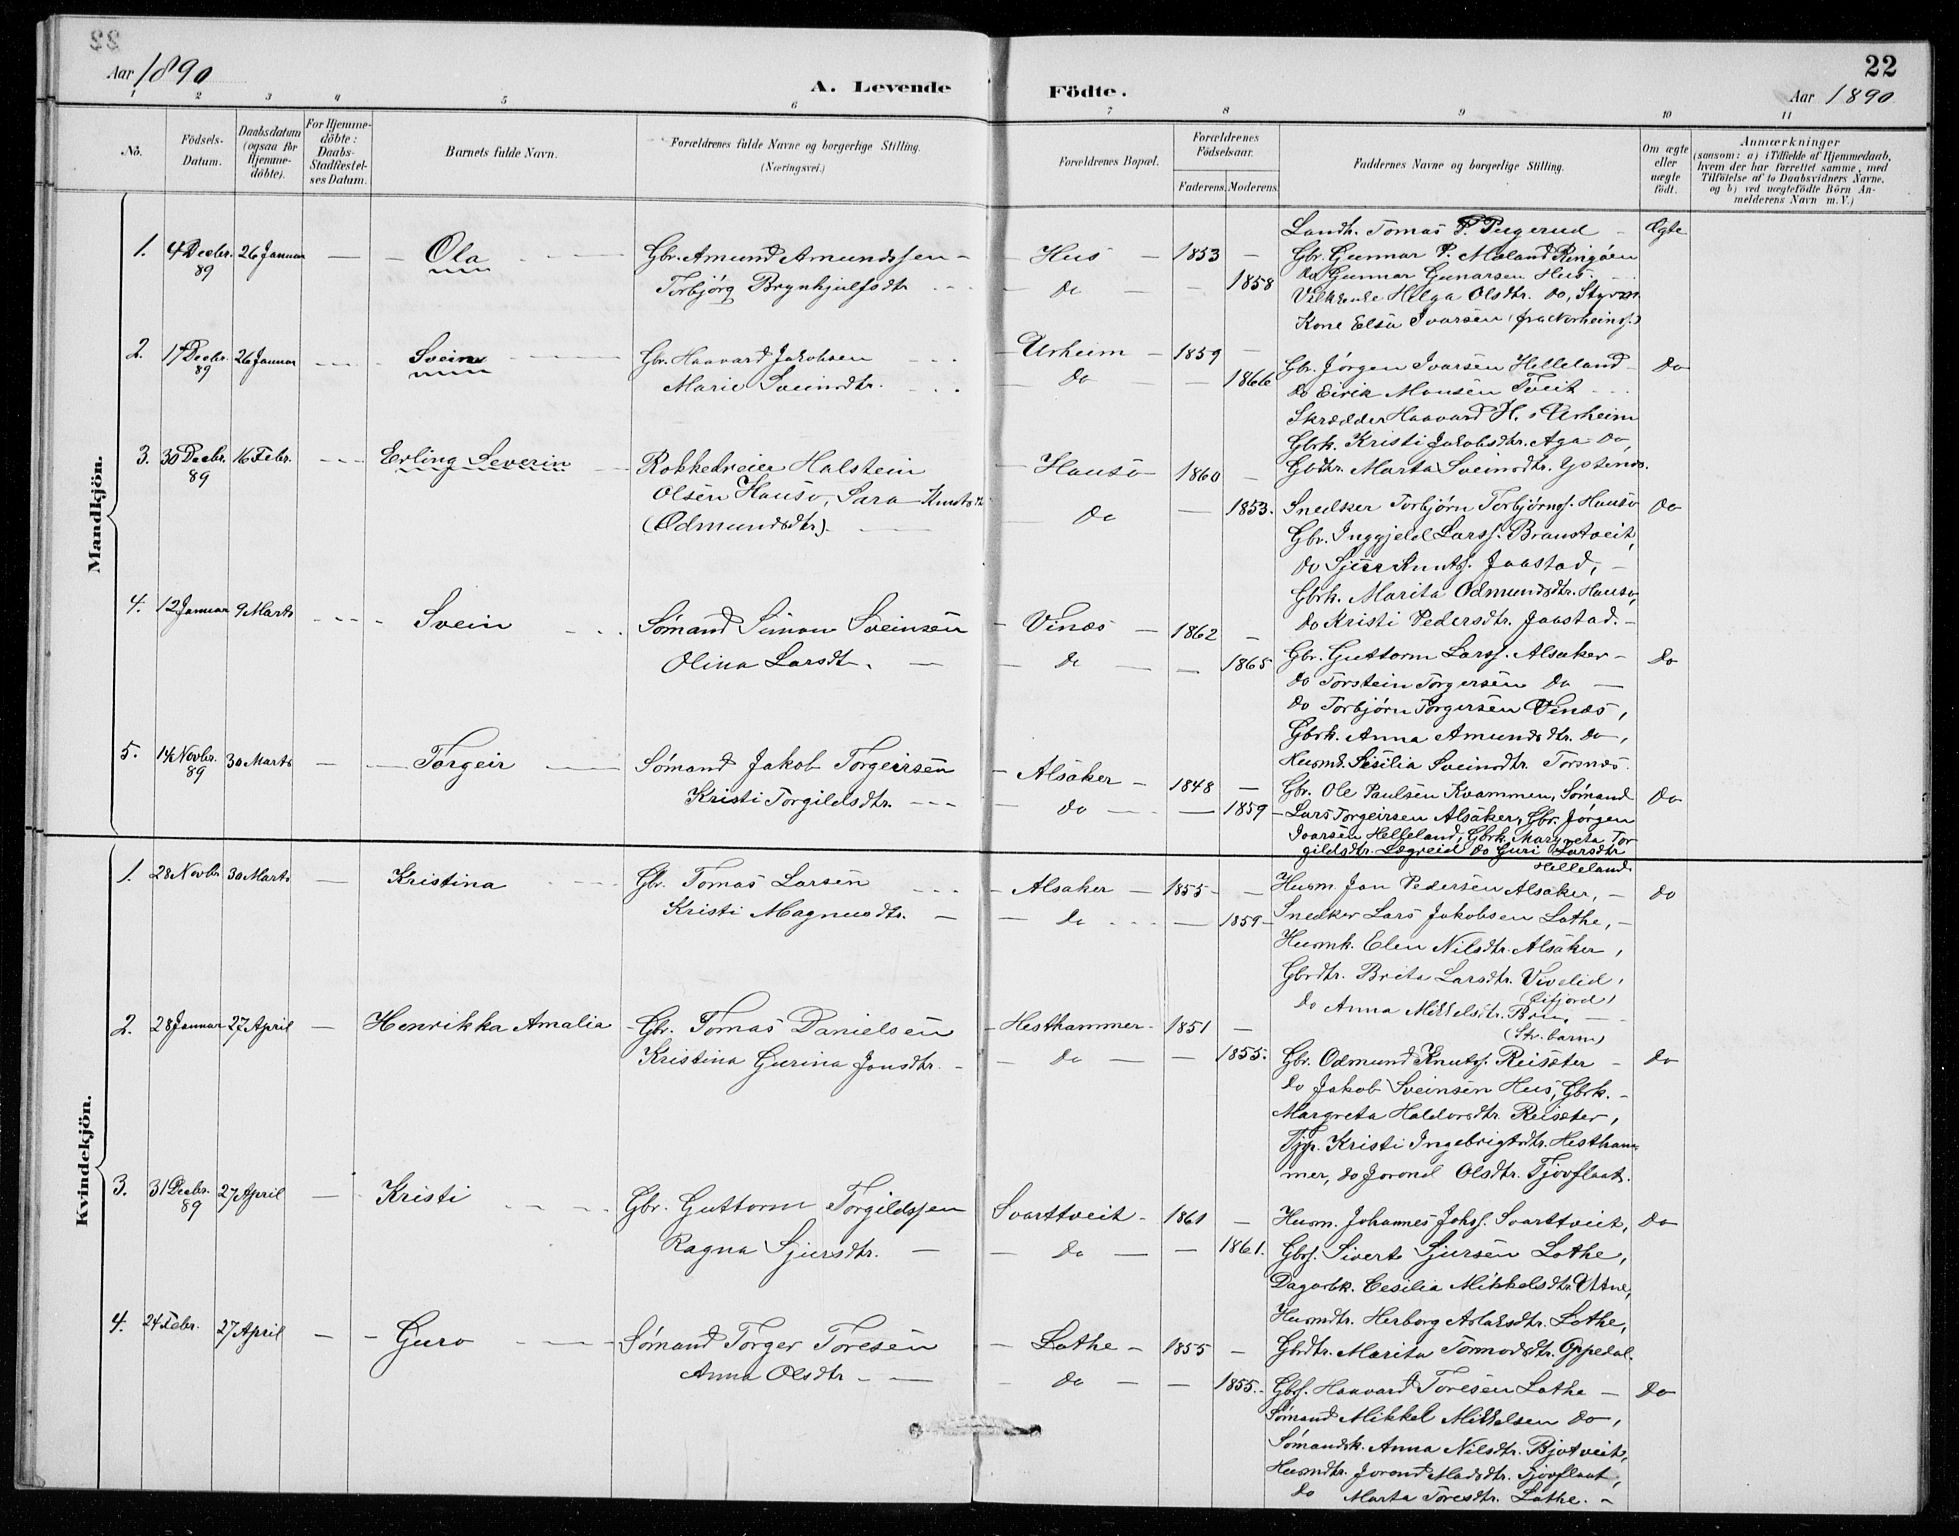 22
Aar 1890
A. Levende Födte.
22
Aar 1890
1 2 3 4 5 6 7 8 9 10 11
No.
Födsels-Datum.
Daabsdatum (ogsaa for Hjemme-döbte).
For Hjemme-döbte: Daabs-Stadfæstel-ses Datum.
Barnets fulde Navn.
Forældrenes fulde Navne og borgerlige Stilling.
(Næringsvei.)
Forældrenes Bopæl.
Forældrenes Födselsaar.
Faderens. Moderens.
Faddernes Navne og borgerlige Stilling.
Om ægte eller uægte födt.
Anmærkninger
(saasom: a) i Tilfælde af Hjemmedaab,
hvem der har forrettet samme, med
Tilföielse af to Daabsvidners Navne,
og b) ved uægtefödte Börn An-
melderens Navn m. V.)
Mandkjön.
1. 4 Decbr. 89 26 Januar — Ola
Gbr. Amund Amundssen — Hus — 1853
Torbjørg Brynhjulfsdtr. — do — 1858
Landh. Tomas P. — Ægte
Gbr. Gunnar P. Maland Ringøen
do Gunnar Gunarsen Hus.
Helga Olsdtr. do, Styrm.
Kone Elsa Ivarsen (fra Norheims.)
2. 17 Decbr. 89 26 Januar — Svein
Gbr. Haavard Jakobsen — Urheim — 1859
Marie Sveinsdtr. — do — 1866
Gbr. Jørgen Ivarsen Helleland — do
do Eirik Monsen Tveit
Skrædder Haavard H.s Urheim
Gbrk. Kristi Jakobsdtr. Aga do,
Gbdtr. Marta Sveinsdtr. Ystenes.
3. 30 Decbr. 89 16 Febr. — Erling Severin
Rokkedreier Halstein — Hauso — 1860
Olsen Hauso, Sara Knutsdtr. — do — 1853.
(Odmundsdtr.)
Snedker Torbjørn Torbjørns. Hauso — do
Gbr. Inggjeld Larss. Braastveit,
do Sjur Knuts. Jaastad, —
Gbrk. Marita Odmundsdtr. Hauso,
do Kristi Pedersdtr. Jaastad. —
4. 12 Januar 9 Marts — Svein
Sømand Simon Sveinsen — Vinæs — 1862
Olina Larsdtr. — do — 1865
Gbr. Guttorm Larss. Alsaker — do
do Torstein Torgersen do —
do Torbjørn Torgersen Vinæs,
Gbrk. Anna Amundsdtr. do,
Husmd. Sesilia Sveinsdtr. Torsnæs.
5. 14 Novbr. 89 30 Marts — Torgeir
Sømand Jakob Torgeirsen — Alsaker — 1848
Kristi Torgildsdtr. — do — 1859
Gbr. Ole Paulsen Kvammen, Sømand — do
Lars Torgeirsen Alsaker, Gbr. Jørgen
Ivarsen Helleland, Gbrk. Margreta Tor-
gildsdtr. Lægreid do Guri Larsdtr
Helleland
Kvindekjön.
1. 28 Novbr. 30 Marts — Kristina
Gbr. Tomas Larsen — Alsaker — 1855
Kristi Magnusdtr. — do — 1859
Husm. Jon Pedersen Alsaker, — do
Snedker Lars Jakobsen Lothe, —
Husmk. Elen Nilsdtr. Alsaker,
Gbrdtr. Brita Larsdtr. Vivelid,
(Eifjord)
do Anna Mikkelsdtr. —
(Str. barm)
2. 28 Januar 27 April — Henrikka Amalia
Gbr. Tomas Danielsen — Hesthammer — 1851
Kristina Gurina Jonsdtr. — do — 1855.
Gbr. Odmund Knuts. Reisæter — do
do Jakob Sveinsen Hus, Gbrk. —
Margreta Haldorsdtr. Reisæter,
Tjpg. Kristi Ingebrigtsdtr. Hestham-
mer, do Jorond Olsdtr. Tjovflaat.
3. 31 Decbr. 89 27 April — Kristi
Gbr. Guttorm Torgildssen — Svartveit — 1861
Ragna Sjursdtr. — do — 1861.
Husm. Johannes Johs. Svarttveit, do
Gbs. Sivert Sjursen Lothe,
Dagarbk. Cesilia Mikkelsdtr. Utne,
Husmdtr. Herborg Aslaksdtr. Lothe,
Gbrdtr. Marita Tormodsdtr. Oppedal.
4. 24 Febr. 27 April — Guro
Sømand Torger Toresen — Lothe — 1855
Anna Olsdtr — do — 1855.
Gbs. Haavard Toresen Lothe — do
Sømand Mikkel Mikkelsen do,
Sømandsk. Anna Nilsdtr. Bjotveit,
Husmdtr. Jorond Madsdtr. Tjovflaat,
do Marta Toresdtr. Lothe. —